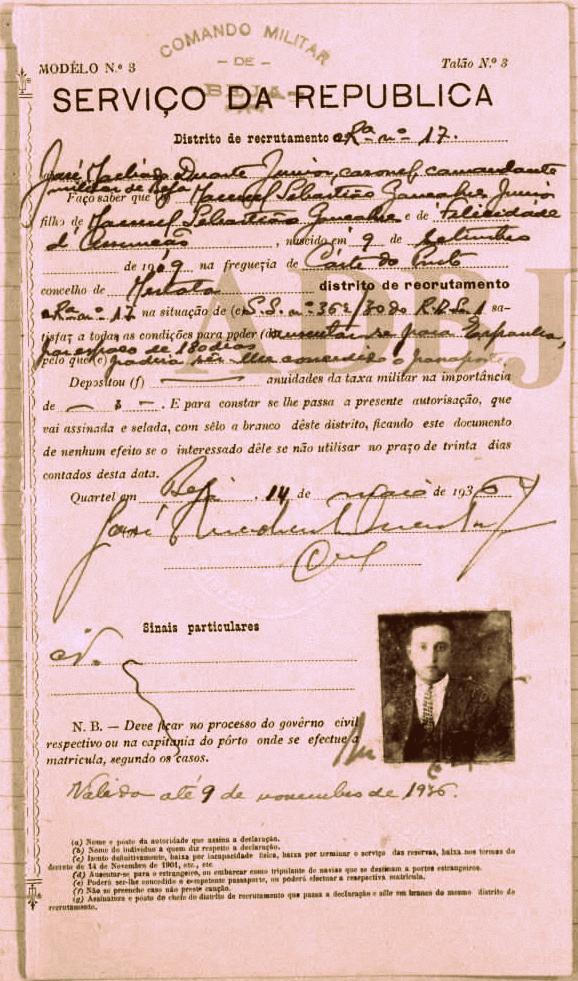 COMANDO MILITAR
- DE -
BEJA
MODÊLO N.º 3
Talão N.º 3
SERVIÇO DA REPUBLICA
Distrito de recrutamento e Ra nº 17.
José Machado Duarte Junior, coronel, comandante
militar de Beja
Faço saber que (b) Manuel Sebastião Gonçalves Junior
filho de Manuel Sebastião Gonçalves e de Felicidade
d'Assunção, nascido em 9 de Setembro
de 1909 na freguezia de Côrte do Pinto
concelho de Mertola distrito de recrutamento
e Ra nº 17 na situação de (c) S.S. nº 362/30 do R.D.S. 1 sa-
tisfaz a todas as condições para poder (d) ausentar-se para Espanha,
por espaço de 180 dias
pelo que (e) poderá ser-lhe concedido o passaporte
Depositou (f) — anuidades da taxa militar na importância
de — $ —. E para constar se lhe passa a presente autorisação, que
vai assinada e selada, com sêlo a branco dêste distrito, ficando este documento
de nenhum efeito se o interessado dêle se não utilisar no prazo de trinta dias
contados desta data.
Quartel em Beja, 14 de maio de 1936
José Machado Duarte Jr
Cor.el
Sinais particulares
N. B. — Deve ficar no processo do govêrno civil
respectivo ou na capitania do pôrto onde se efectue a
matricula, segundo os casos.
Valido até 9 de novembro de 1936.
(a) Nome e posto da autoridade que assina a declaração.
(b) Nome do individuo a quem diz respeito a declaração.
(c) Isento definitivamente, baixa por incapacidade fisica, baixa por terminar o serviço das reservas, baixa nos termos do
decreto de 14 de Novembro de 1901, etc., etc.
(d) Ausentar-se para o estrangeiro, ou embarcar como tripulante de navios que se destinam a portos estrangeiros.
(e) Poderá ser-lhe concedido o competente passaporte, ou poderá efectuar a respectiva matricula.
(f) Não se preenche caso não preste caução.
(g) Assinatura e posto do chefe do distrito de recrutamento que passa a declaração e sêlo em branco do mesmo distrito de
recrutamento.
ADBJ